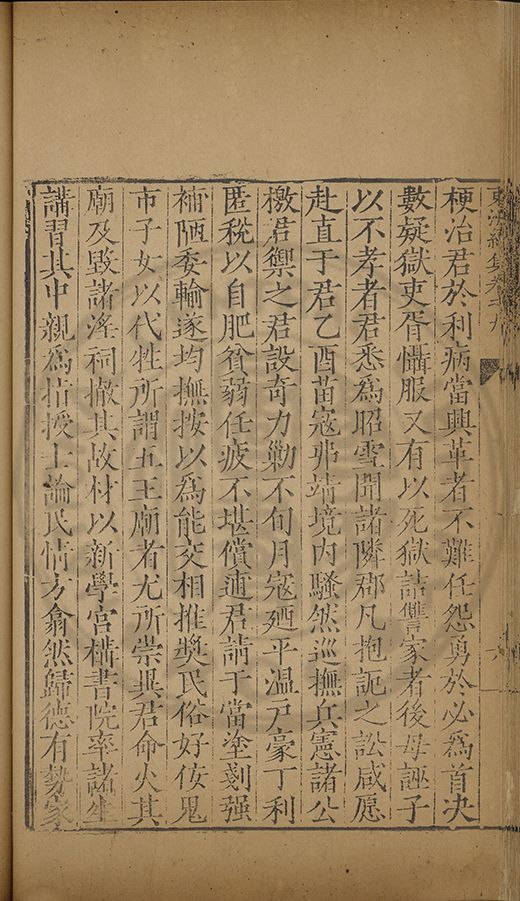 集卷
梗治君於利病當興革者不難任怨勇於必為首決
數疑獄吏胥懾服又有以死獄詰讐家者後母誣子
以不孝者君悉為昭雪聞諸隣郡凡抱詘之訟咸愿
赴直于君乙酉苗寇弗靖境內騷然巡撫兵憲諸公
檄君禦之君設奇力勦不旬月寇廼平溫戸豪丁利
匿稅以自肥貧弱任疲不堪償逋君請于當塗剗强
補陋委輸遂均撫按以為能交相推奬民俗好佞鬼
市子女以代牲所謂五王廟者尤所崇異君命火其
廟及毀諸淫祠撤其故材以新學宮構書院率諸生
講習其中親為指授士論民情方翕然歸德有勢家